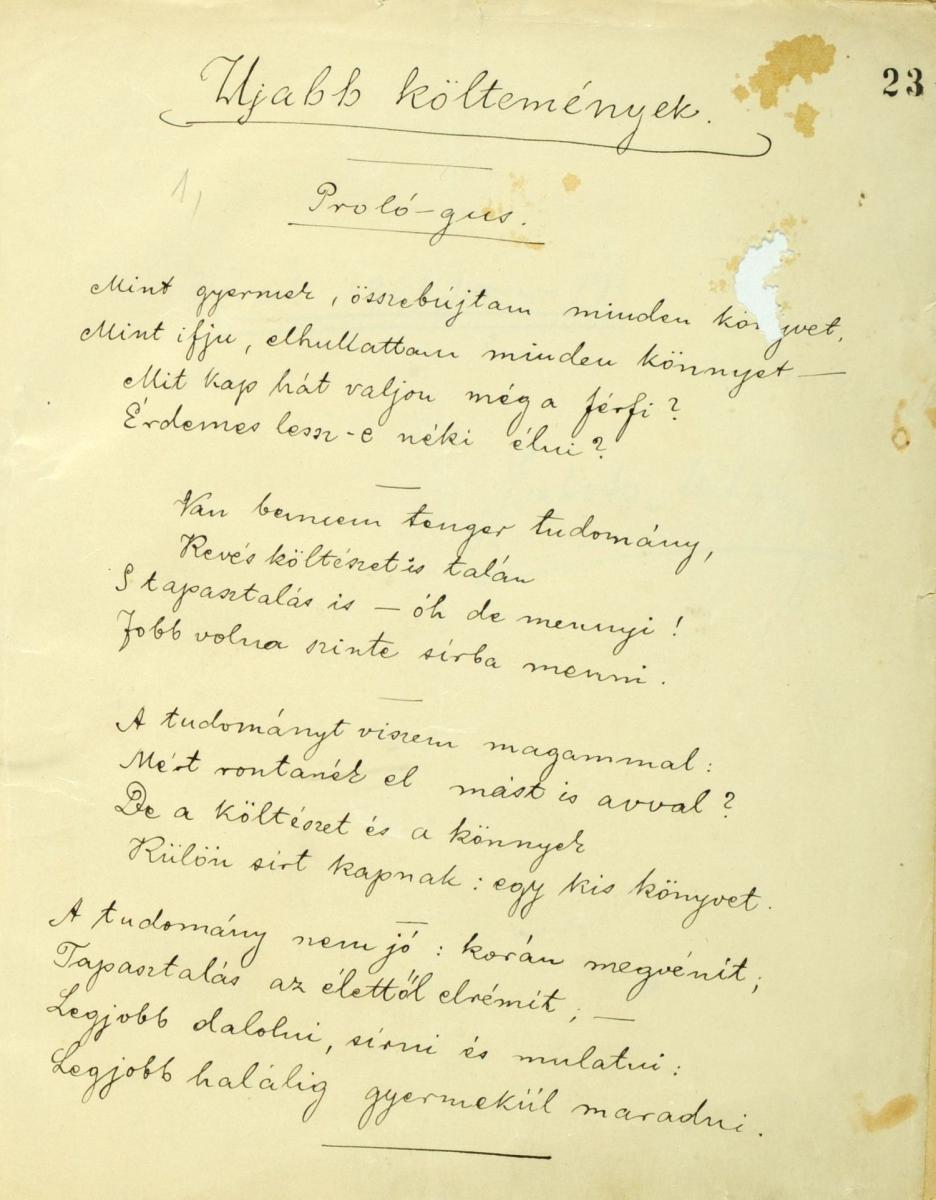 23
Ujabb költemények.
1,
Proló-gus.
Mint gyermek, összebújtam minden könyvet,
Mint ifju, elhullattam minden könnyet —
Mit kap hát valjon még a férfi?
Érdemes lesz-e néki élni?
Van bennem tenger tudomány,
Kevés költészet is talán
S tapasztalás is — óh de mennyi!
Jobb volna szinte sírba menni.
A tudományt viszem magammal:
Mért rontanék el mást is avval?
De a költészet és a könnyek
Külön sírt kapnak: egy kis könyvet.
A tudomány nem jó: korán megvénít;
Tapasztalás az élettől elrémít; —
Legjobb dalolni, sírni és mulatni:
Legjobb halálig gyermekül maradni.